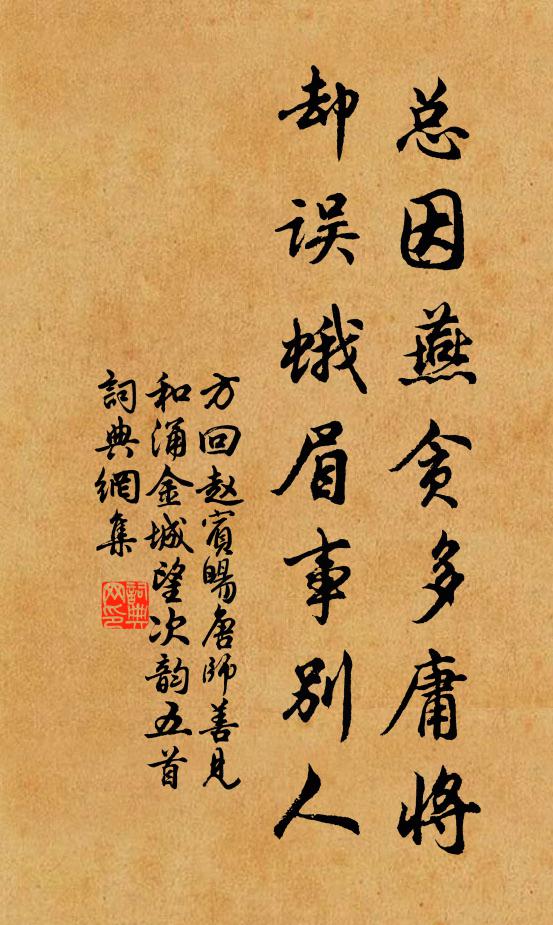 总因燕贪多庸将
却误蛾眉事别人
方回赵宾旸唐师善见
和涌金城望次韵五首
詞典網集
詞典网印